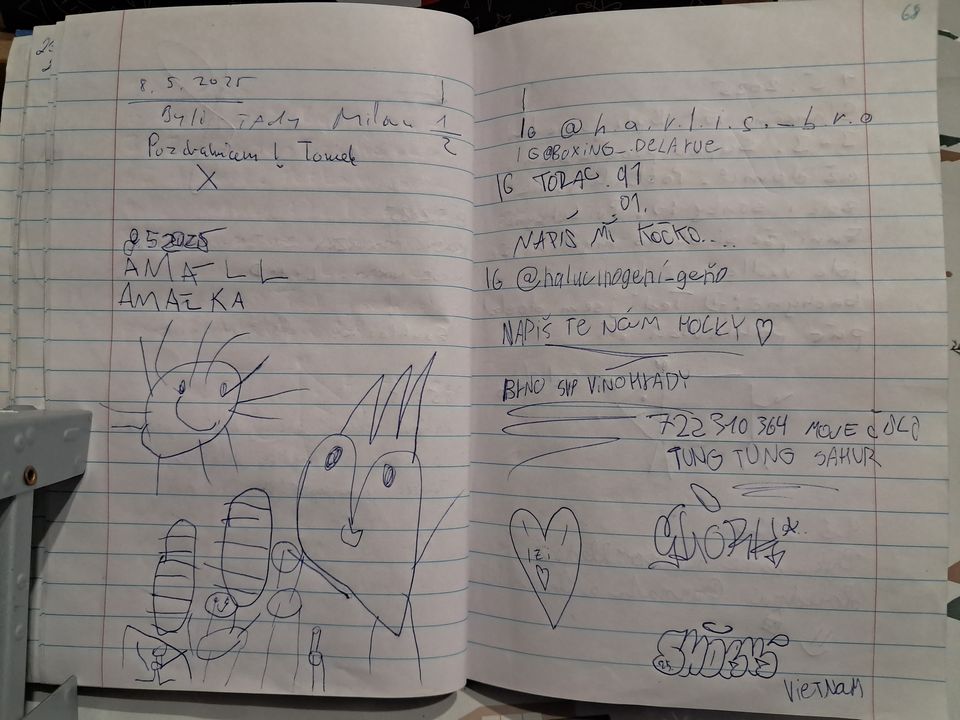 8. 5. 2025
Byli TADY Milan 1/2
Pozdravicem! Tomek
X
8 5 2025
AMALL
AMALKA
68
IG @h.a.r.l.i.s._b.r.o
IG@BOXING_DELARUE
IG TODAC.91
01.
NAPIŠ MI KOČKO....
IG @halucinogení_geňo
NAPIŠ TE NÁM HOLKY ♡
BRNO SVP VINOHRADY
722310364 MOJE ČÍSLO
TUNG TUNG SAHUR
IZI
VIETNAM